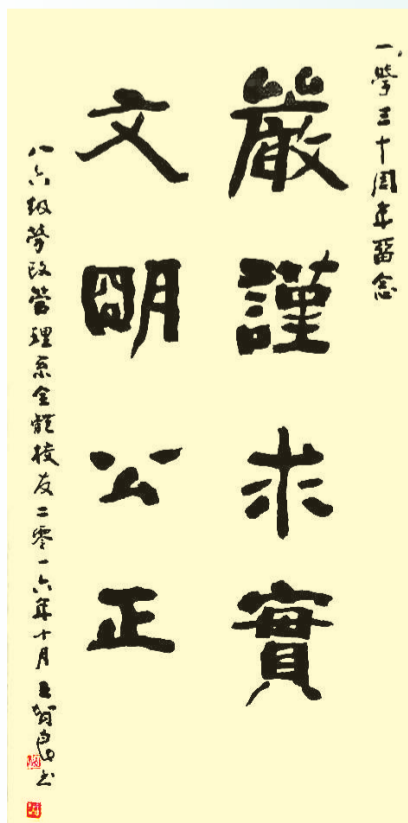 入學三十周年留念
嚴謹求實
文明公正
八六級勞改管理系全體校友二零一六年十月王良书